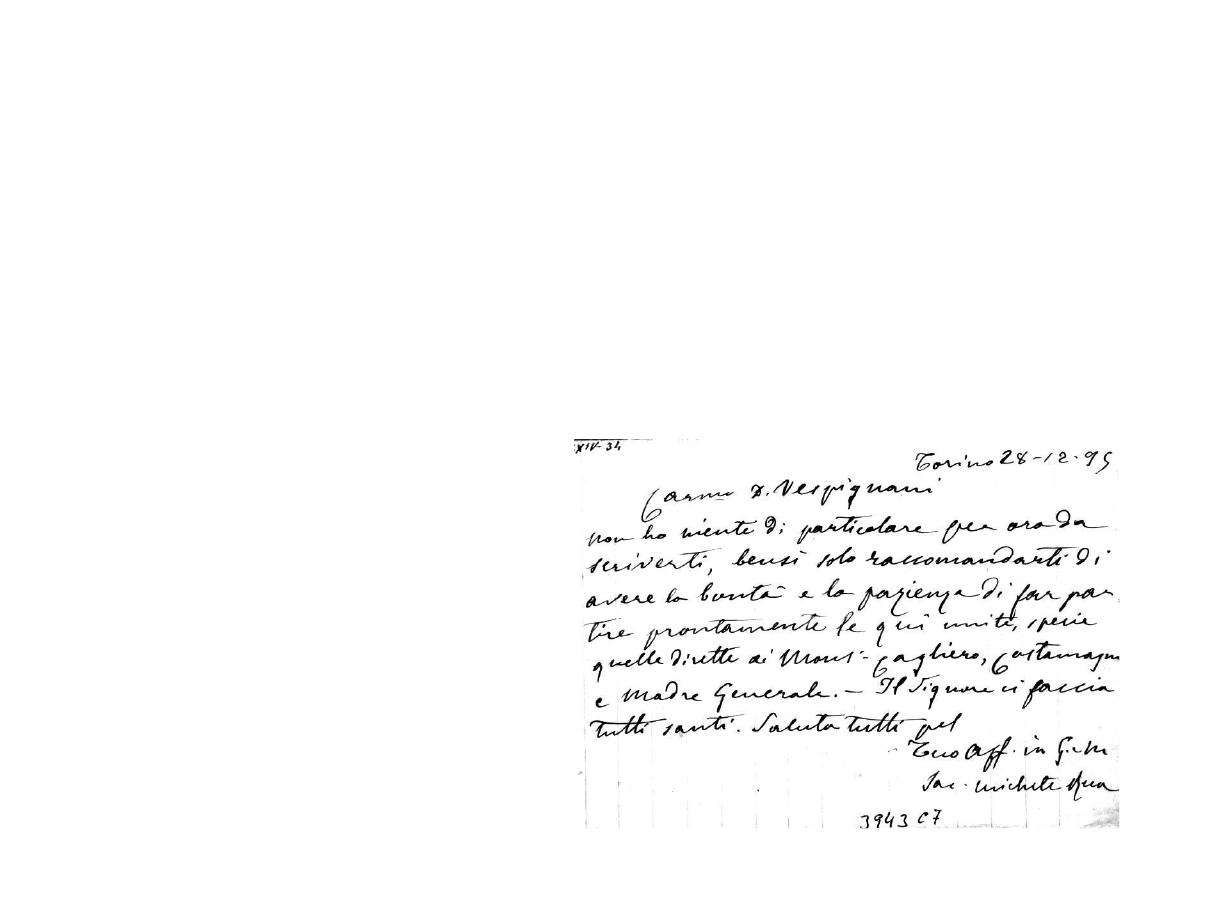 XIV-34
Torino 28-12-95
Carmo D. Vespignani
non ho niente di particolare per ora da
scriverti, bensì solo raccomandarti di
avere la bontà e la pazienza di far par
tire prontamente le qui unite, specie
quelle dirette ai Monsi- Cagliero, Costamagna
e Madre Generale. - Il Signore ci faccia
tutti santi. Saluta tutti pel
Tuo Aff. in G. e M
Sac. Michele Rua
3943 C7